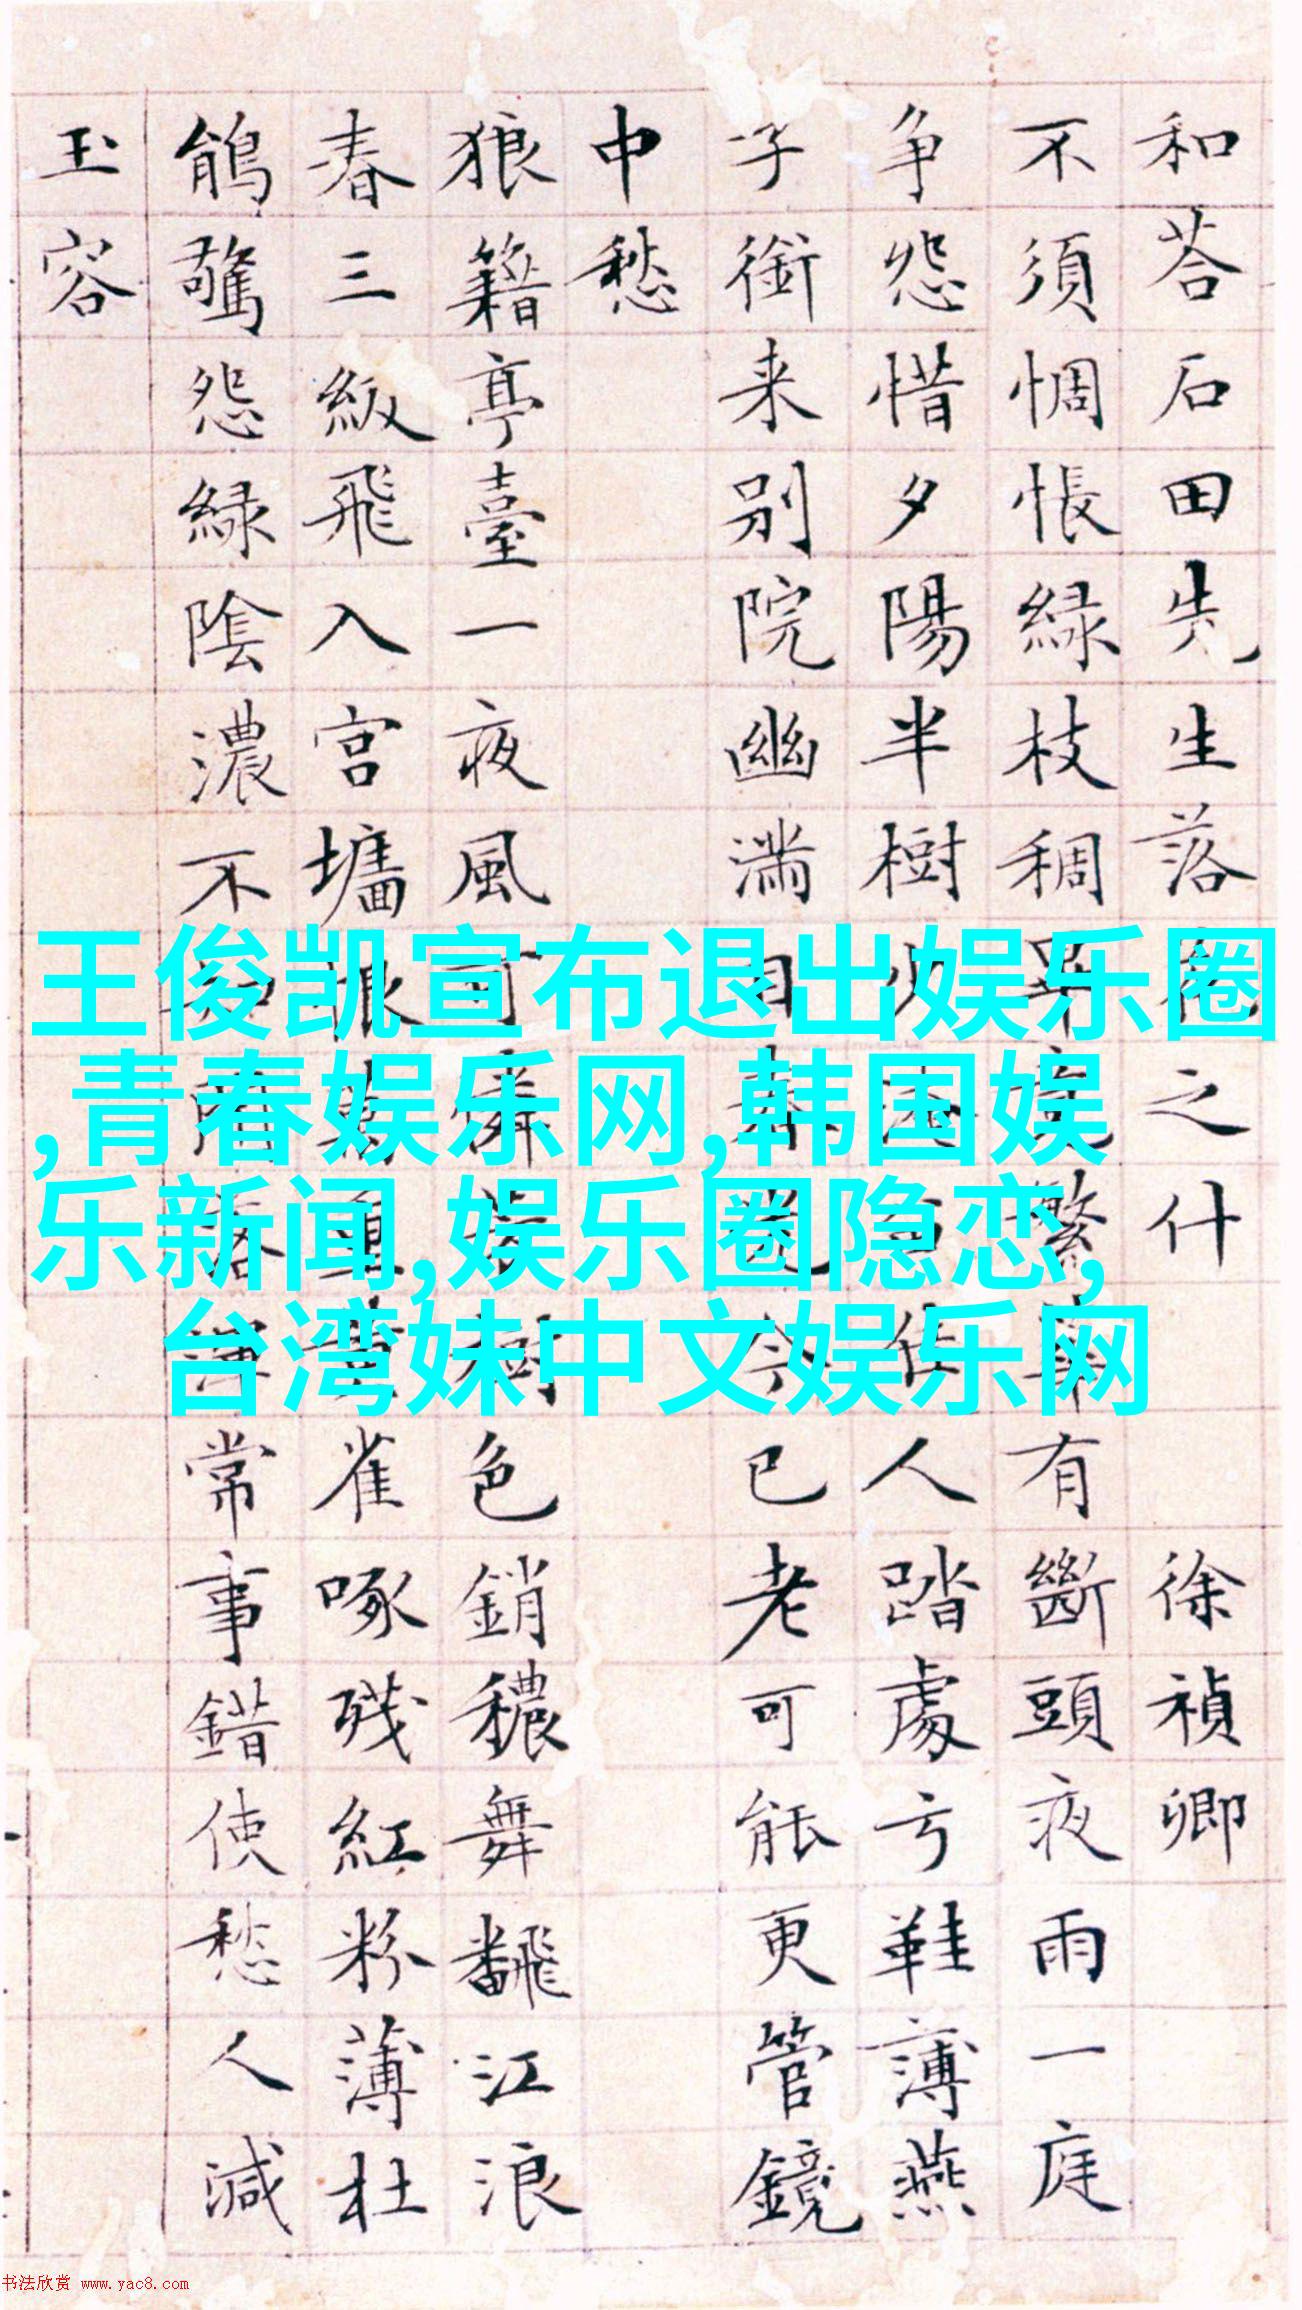 和荅石田先生落之什 徐禎卿
不須惆悵綠枝稠繁有斷頭夜雨一庭
争怨惜夕陽半樹人踏處弓鞋薄燕
子銜来别院幽滿目春今已老可能更管鏡
中愁
狼籍亭臺一夜風可憐樹色銷穠舞飜江浪
春三級飛入宮墻恨重雀啄殘紅粉薄杜
鵑驚怨綠陰濃不常事錯使愁人減
玉容
王俊凯宣布退出娱乐圈
,青春娱乐网,韩国娱
乐新闻,娱乐圈隐恋,
台湾妹中文娱乐网
书法欣赏 www.yac8.com